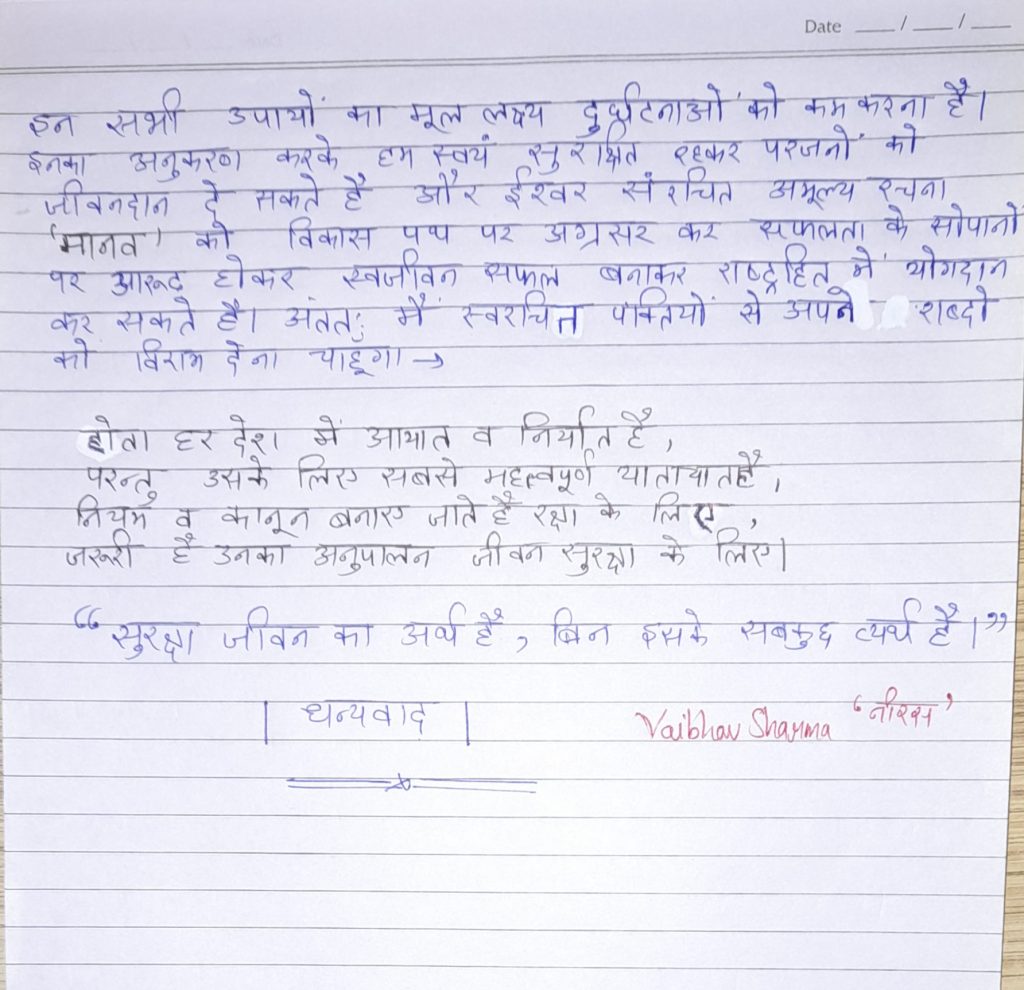 Date __/__/__
इन सभी उपायों का मूल लक्ष्य दुर्घटनाओं को कम करना है।
इनका अनुकरण करके हम स्वयं सुरक्षित रहकर परजनों को
जीवनदान दे सकते है और ईश्वर संरचित अमूल्य रचना
'मानव' को विकास पथ पर अग्रसर कर सफलता के सोपानो
पर आरूढ़ होकर स्वजीवन सफल बनाकर राष्ट्रहित में योगदान
कर सकते है। अंतत: मैं स्वरचित पंक्तियों से अपने शब्दो
को विराम देना चाहूंगा →
होता हर देश में आयात व निर्यात है,
परन्तु उसके लिए सबसे महत्वपूर्ण यातायात है,
नियम व कानून बनाए जाते है रक्षा के लिए,
जरूरी है उनका अनुपालन जीवन सुरक्षा के लिए।
“सुरक्षा जीवन का अर्थ है, बिन इसके सबकुछ व्यर्थ है।”
| धन्यवाद |
Vaibhav Sharma 'नीरस'